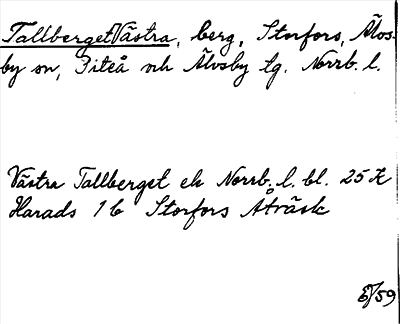 Tallberget Västra, berg, Storfors, Älvs-
by sn, Piteå och Älvsby tg. Norrb. l.
Västra Tallberget ek Norrb. l. bl. 25 K
Harads 1 b Storfors Åträsk
E/59